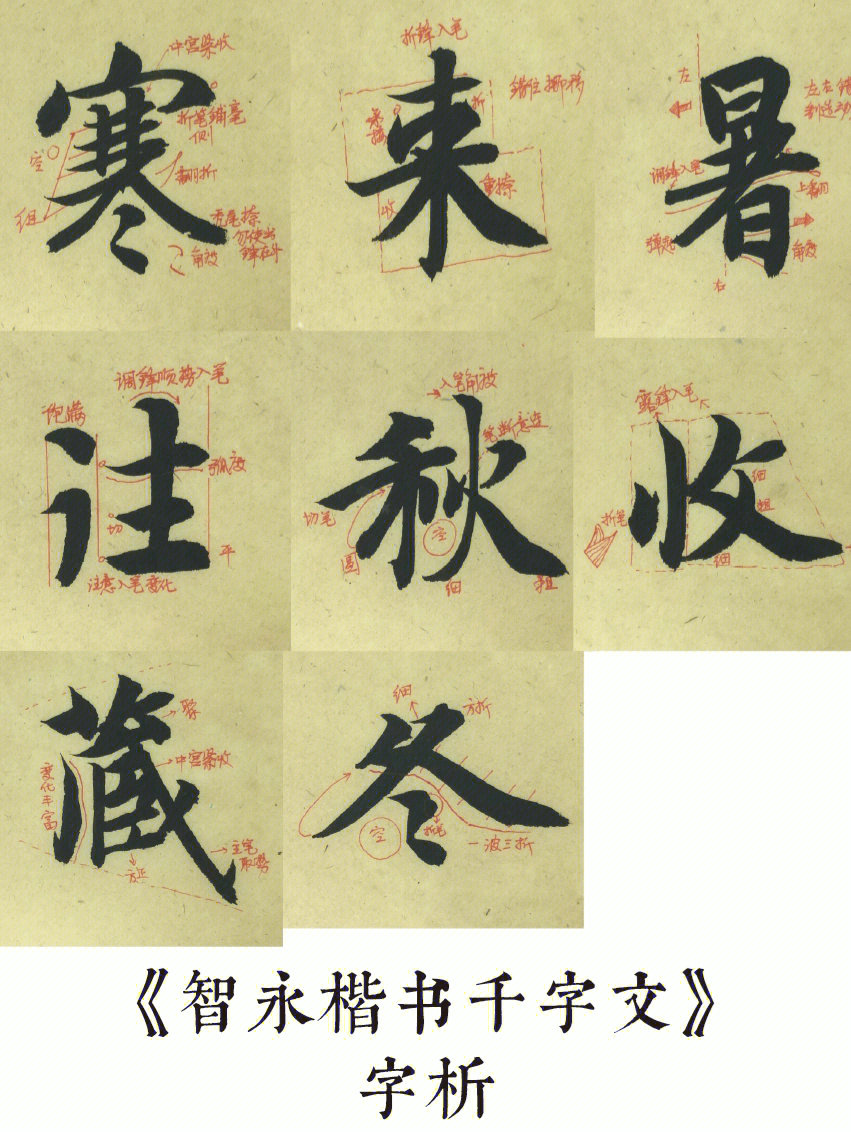 寒
中宫紧收
折笔铺毫
侧
空
翻折
粗
虎尾捺
勿使出
锋在外
角度
来
折锋入笔
错位挪移
折
承接
重捺
收
暑
左
左右错
调锋入笔
上翻
弹起
角度
右
往
调锋顺势入笔
饱满
弧度
切
平
注意入笔变化
秋
入笔角度
笔断意连
切笔
空
圆
细
粗
收
露锋入笔
细
粗
折笔
细
藏
聚
中宫紧收
变化丰富
主笔
取势
方正
冬
细
方折
空
折笔
一波三折
《智永楷书千字文》
字析